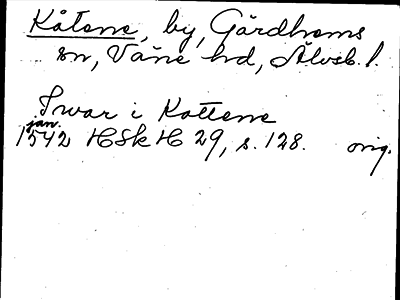 Kåtene, by, Gärdhems
sn, Väne hd, Älvsb. l.
Iwar i Kattene
jan.
1542 HSkH 29, s. 128. orig.